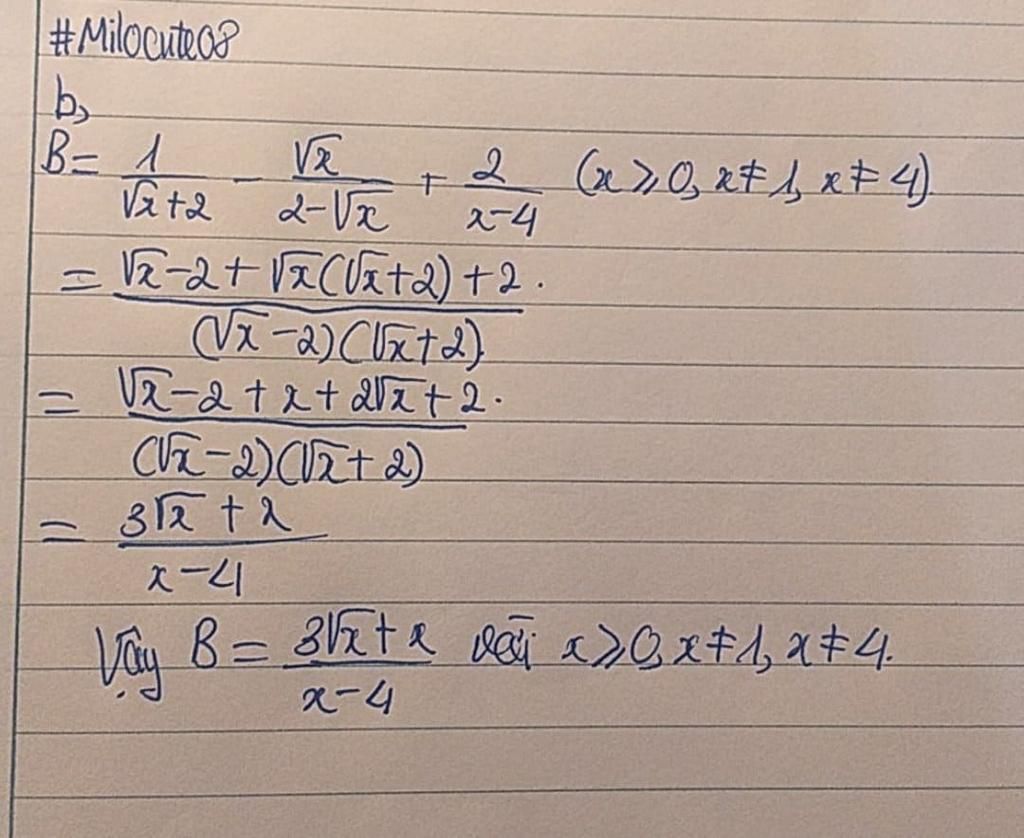 #Milocute08
b,
B = 1/(√x+2) - √x/(2-√x) + 2/(x-4) (x ≥ 0, x ≠ 1, x ≠ 4)
= (√x-2+√x(√x+2)+2)/((√x-2)(√x+2)).
= (√x-2+x+2√x+2)/((√x-2)(√x+2)).
= (3√x+x)/(x-4)
Vậy B = (3√x+x)/(x-4) với x ≥ 0, x ≠ 1, x ≠ 4.